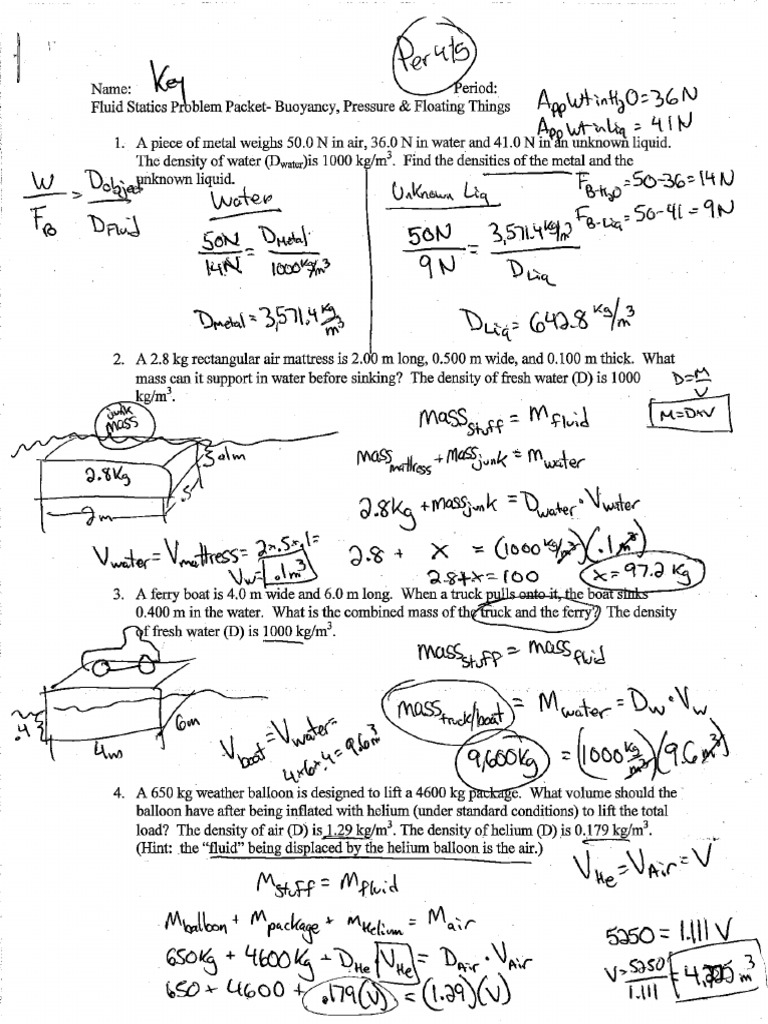 Per 4/5
Name: Key Period:
Fluid Statics Problem Packet- Buoyancy, Pressure & Floating Things
App Wt in H2O = 36N
App Wt in Liq = 41N
1. A piece of metal weighs 50.0 N in air, 36.0 N in water and 41.0 N in an unknown liquid.
The density of water (Dwater)is 1000 kg/m³. Find the densities of the metal and the
unknown liquid.
W/FB = Dobject/DFluid
Water
50N/14N = DMetal/1000 kg/m³
DMetal = 3,571.4 kg/m³
Unknown Liq
FB-H2O = 50-36 = 14N
FB-Liq = 50-41 = 9N
50N/9N = 3,571.4 kg/m³/DLiq
DLiq = 642.8 kg/m³
2. A 2.8 kg rectangular air mattress is 2.00 m long, 0.500 m wide, and 0.100 m thick. What
mass can it support in water before sinking? The density of fresh water (D) is 1000
kg/m³.
D=M/V
M=D×V
junk
mass
2.8Kg
.1m
.5
2m
Massstuff = Mfluid
Massmattress + Massjunk = Mwater
2.8Kg + Massjunk = Dwater · Vwater
Vwater = Vmattress = 2×.5×.1=
Vw= .1m³
2.8 + x = (1000 kg/m³)(.1m³)
2.8+x = 100
x = 97.2 Kg
3. A ferry boat is 4.0 m wide and 6.0 m long. When a truck pulls onto it, the boat sinks
0.400 m in the water. What is the combined mass of the truck and the ferry? The density
of fresh water (D) is 1000 kg/m³.
.4
4m
6m
Massstuff = Massfluid
Masstruck/boat = Mwater = Dw · Vw
Vboat = Vwater=
4×6×.4 = 9.6m³
9,600kg = (1000 kg/m³)(9.6m³)
4. A 650 kg weather balloon is designed to lift a 4600 kg package. What volume should the
balloon have after being inflated with helium (under standard conditions) to lift the total
load? The density of air (D) is 1.29 kg/m³. The density of helium (D) is 0.179 kg/m³.
(Hint: the "fluid" being displaced by the helium balloon is the air.)
VHe = VAir = V
Mstuff = Mfluid
Mballoon + Mpackage + MHelium = Mair
650Kg + 4600Kg + DHe VHe = DAir · VAir
650 + 4600 + .179(V) = (1.29)(V)
5250 = 1.111 V
V = 5250/1.111 = 4,725 m³